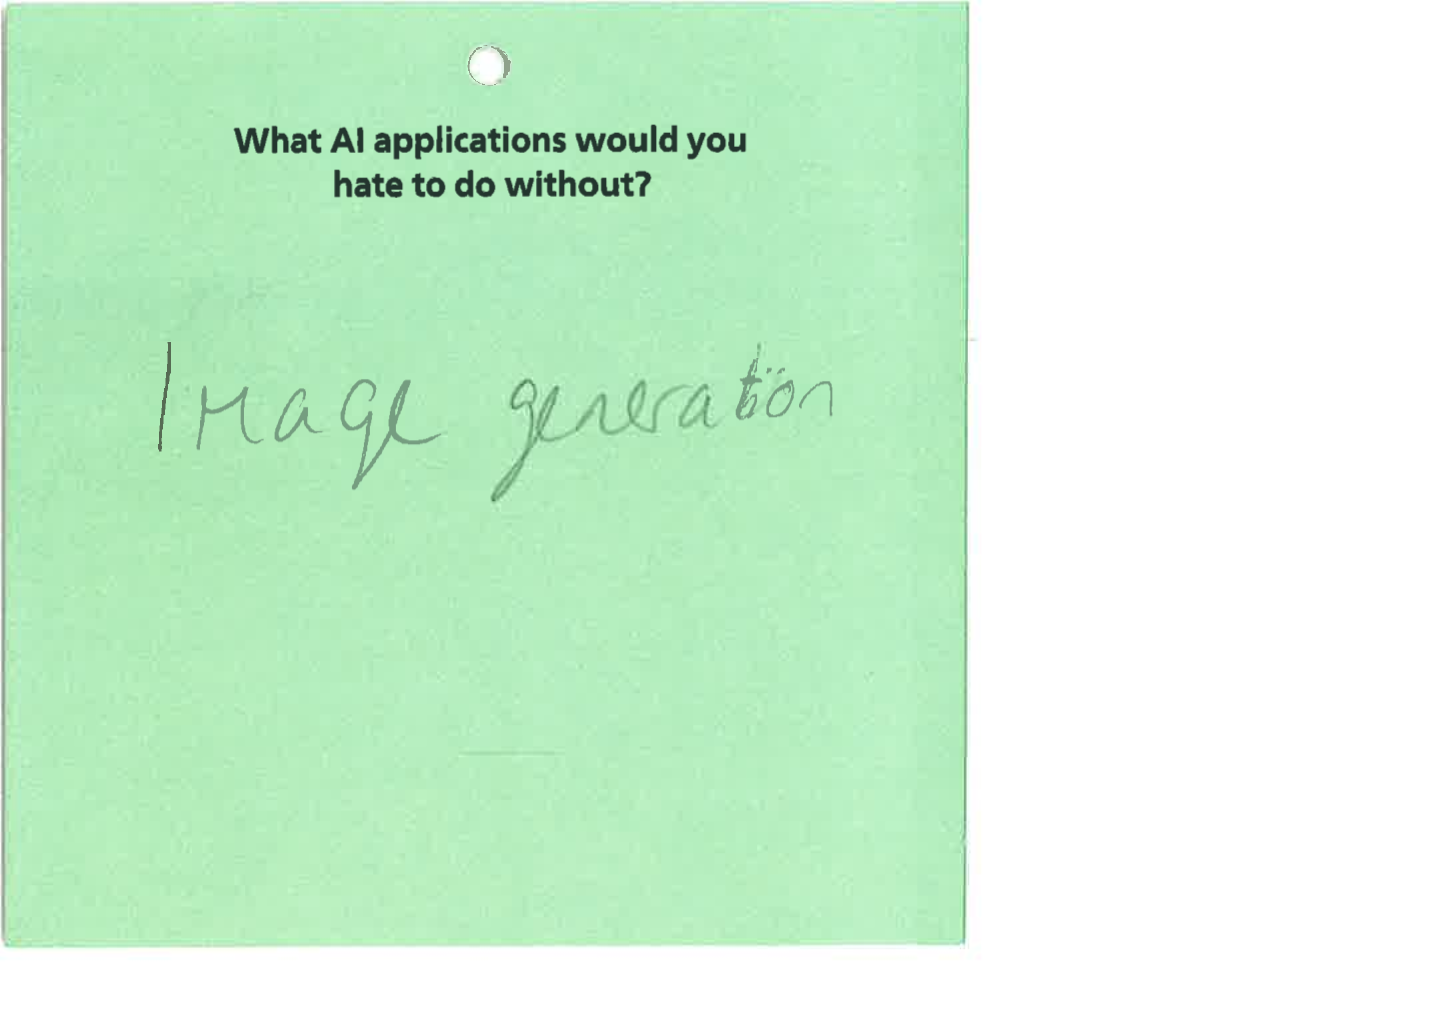 What AI applications would you
hate to do without?
Image generation